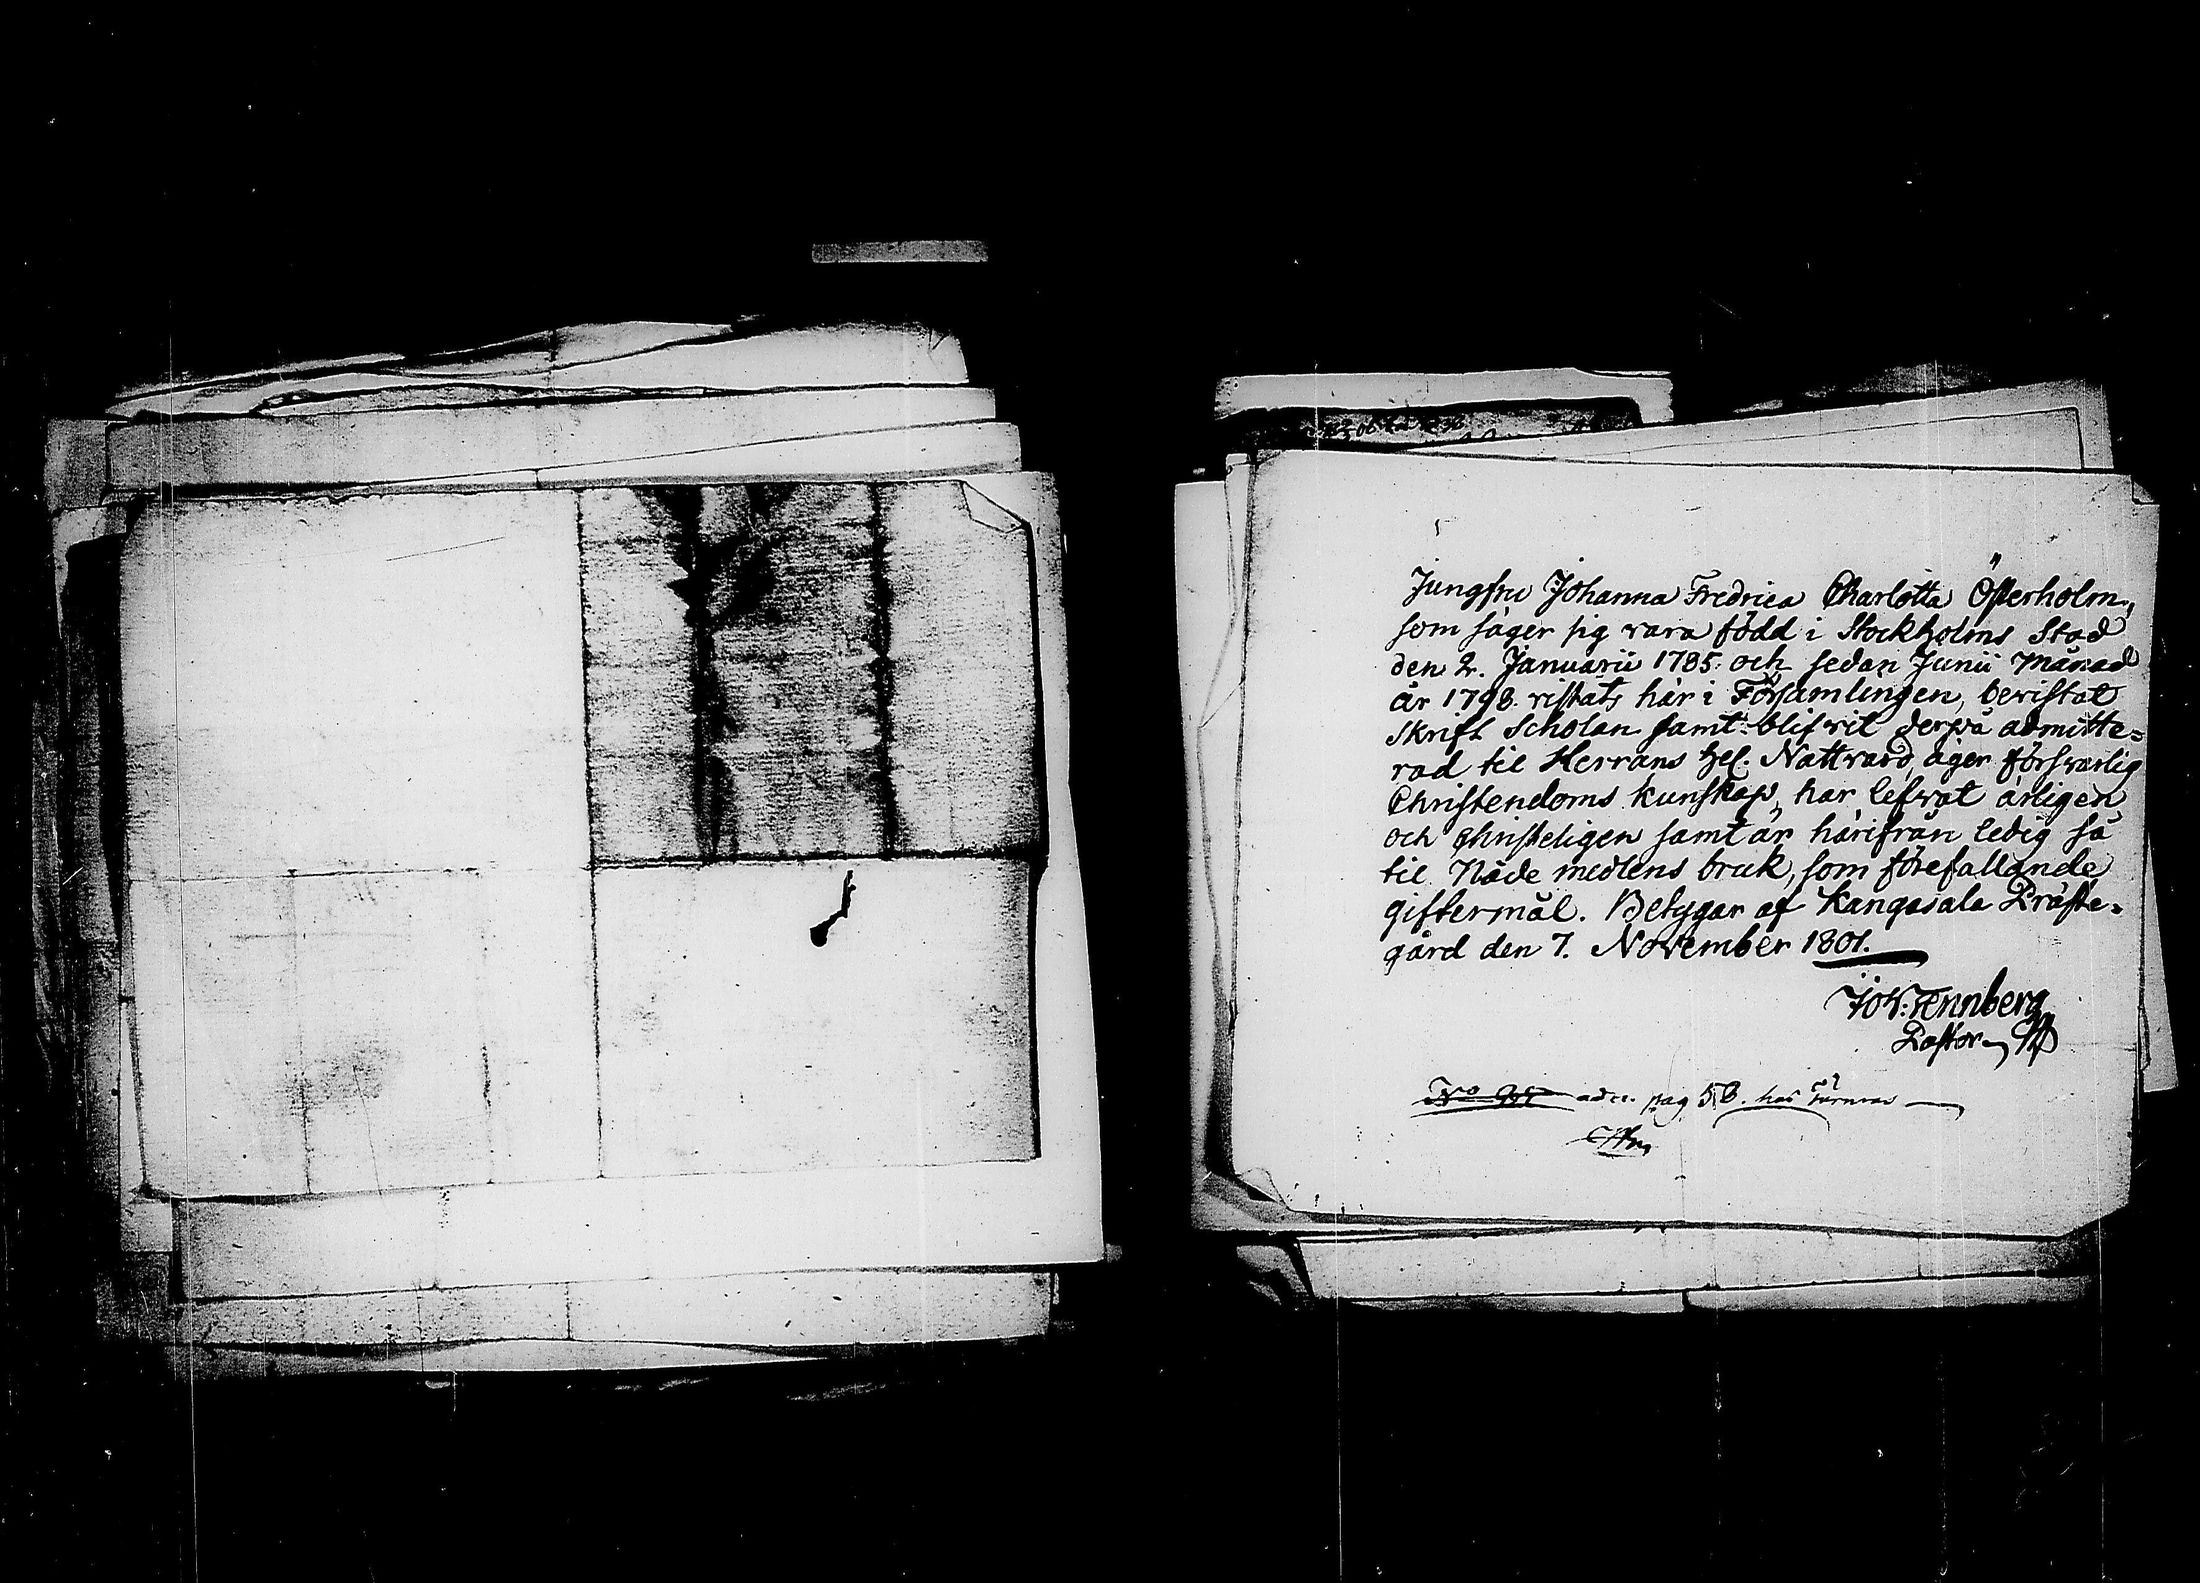 Jungfru Johanna Fredrica Charlotta Österholm,
som säger sig vara född i Stockholms Stad
den 2. Januarii 1785. och sedan Junii Månad
år 1798. vistats här i Församlingen, bevistat
Skrift Scholan samt blifvit derpå admitte=
rad til Herrans hel. Nattvard, äger försvarlig
Christendoms kunskap, har lefvat ärligen
och Christeligen samt är härifrån ledig så
til Nåde medlens bruk, som förefallande
giftermål. Betygar af Kangasala Präste=
gård den 7. November 1801.
Joh: Tennberg
Pastor
No adn. pag 58. hos